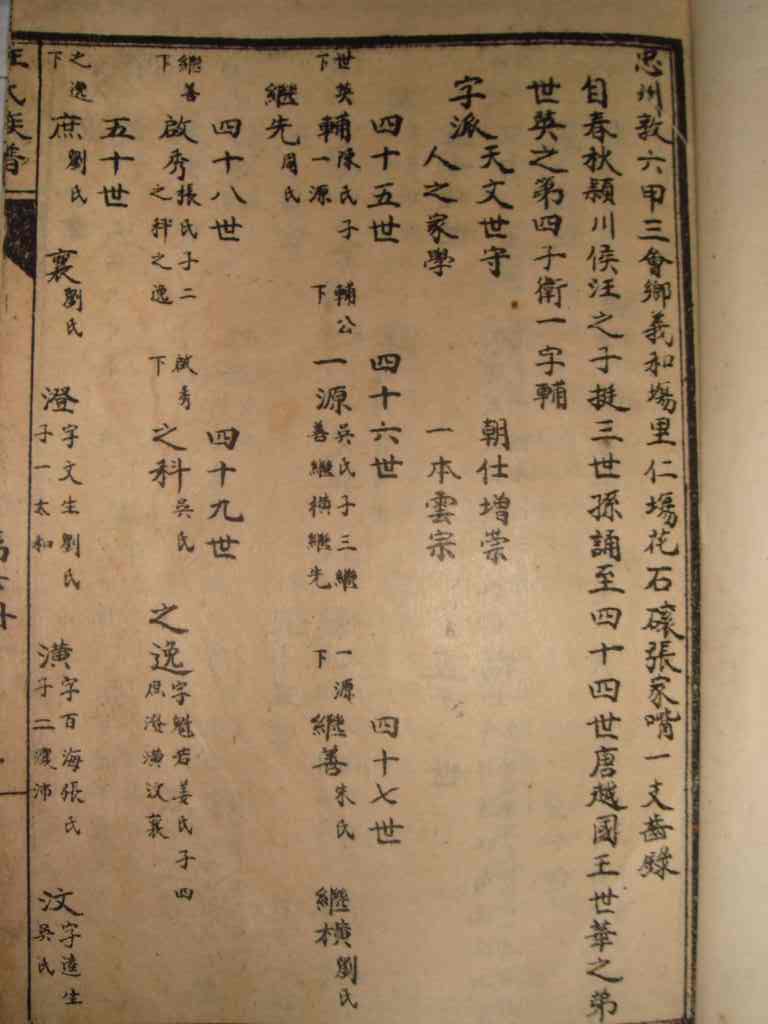 忠州敦六甲三會鄉義和塲里仁塲花石磉張家嘴一支齒錄
自春秋頴川侯汪之子挺三世孫誦至四十四世唐越國王世華之弟
世英之第四子衛一字輔
字派
天文世守 朝仕增榮
人之家學 一本雲宗
四十五世 四十六世 四十七世
世英下 輔 陳氏子一源
輔公下 一源 吳氏子三繼善繼横繼先
一源下 繼善 朱氏
繼横 劉氏
繼先 周氏
四十八世 四十九世
繼善下 啟秀 張氏子二之科之逸
啟秀下 之科 吳氏
之逸 字魁若姜氏子四庶澄潢汶襄
五十世
之逸下 庶 劉氏
襄 劉氏
澄 字文生劉氏子一太和
潢 字百海張氏子二沛
汶 字逵生吳氏
汪氏族譜